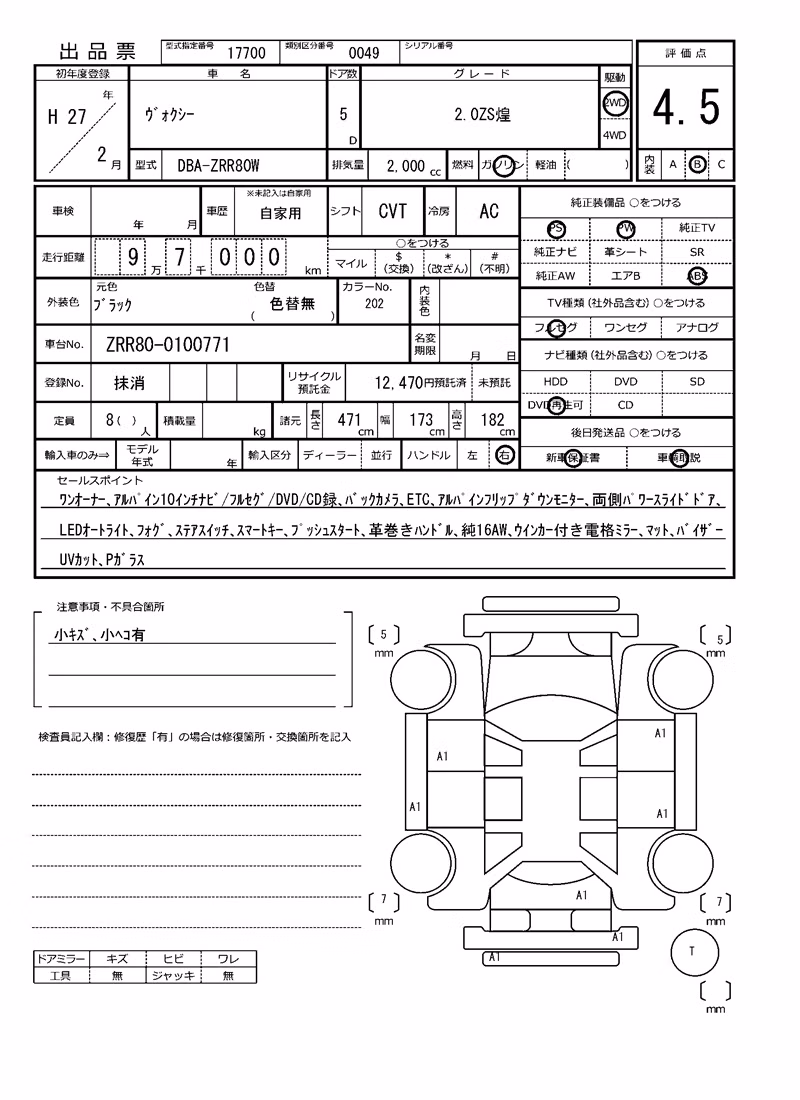 出品票
型式指定番号 17700 類別区分番号 0049 シリアル番号
評価点
4.5
内装 A B C
初年度登録 車名 ドア数 グレード 駆動
H 27 年 2 月
ヴォクシー
5 D
2.0ZS煌
2WD
4WD
型式 DBA-ZRR80W 排気量 2,000 cc 燃料 ガソリン 軽油 ( )
車検 年 月 車歴 ※未記入は自家用 自家用 シフト CVT 冷房 AC
走行距離 9 万 7 千 0 0 0 km
○をつける
マイル $(交換) *(改ざん) #(不明)
外装色 元色 ブラック 色替 ( 色替無 ) カラーNo. 202 内装色
車台No. ZRR80-0100771 名変期限 月 日
登録No. 抹消 リサイクル預託金 12,470円預託済 未預託
定員 8( ) 人 積載量 kg 諸元 長さ 471 cm 幅 173 cm 高さ 182 cm
輸入車のみ⇒ モデル年式 年 輸入区分 ディーラー 並行 ハンドル 左 右
純正装備品 ○をつける
PS PW 純正TV
純正ナビ 革シート SR
純正AW エアB ABS
TV種類(社外品含む)○をつける
フルセグ ワンセグ アナログ
ナビ種類(社外品含む)○をつける
HDD DVD SD
DVD再生可 CD
後日発送品 ○をつける
新車保証書 車輌取説
セールスポイント
ワンオーナー、アルパイン10インチナビ/フルセグ/DVD/CD録、バックカメラ、ETC、アルパインフリップダウンモニター、両側パワースライドドア、
LEDオートライト、フォグ、ステアスイッチ、スマートキー、プッシュスタート、革巻きハンドル、純16AW、ウインカー付き電格ミラー、マット、バイザー
UVカット、Pガラス
注意事項・不具合箇所
小キズ、小ヘコ有
検査員記入欄：修復歴「有」の場合は修復箇所・交換箇所を記入
ドアミラー キズ ヒビ ワレ
工具 無 ジャッキ 無
5 mm
5 mm
A1
A1
A1
A1
7 mm
7 mm
A1
A1
A1
T
mm